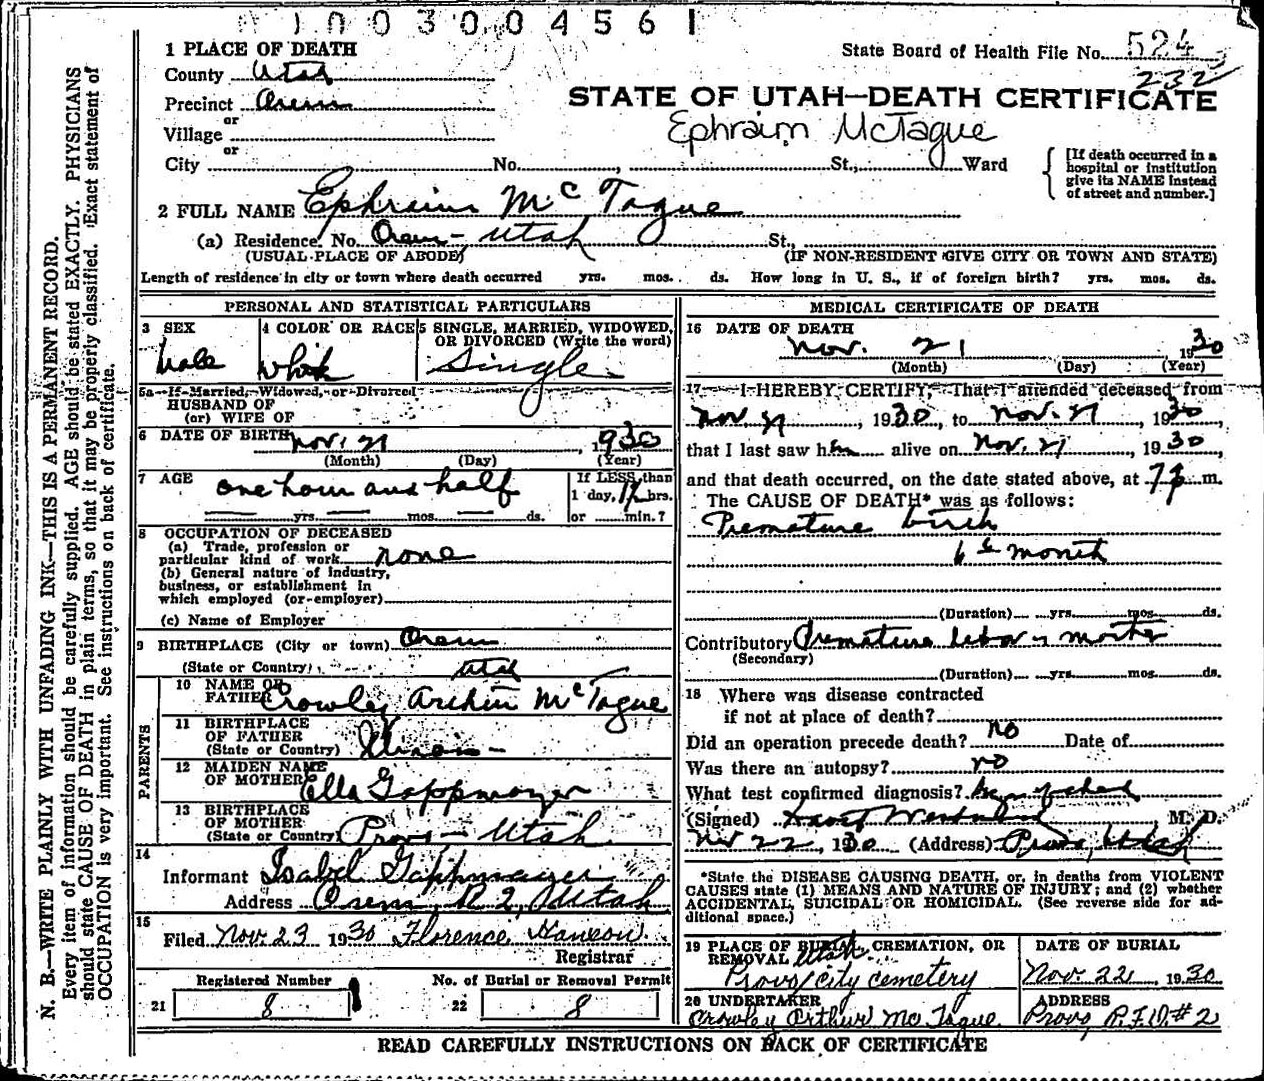 1003004561
1 PLACE OF DEATH
State Board of Health File No. 524
232
County Utah
Precinct Orem
STATE OF UTAH—DEATH CERTIFICATE
or
Village
Ephraim McTague
or
City No. , St., Ward
[If death occurred in a
hospital or institution
give its NAME instead
of street and number.]
2 FULL NAME Ephraim McTague
(a) Residence. No. Orem - Utah St.,
(USUAL PLACE OF ABODE) (IF NON-RESIDENT GIVE CITY OR TOWN AND STATE)
Length of residence in city or town where death occurred yrs. mos. ds. How long in U. S., if of foreign birth? yrs. mos. ds.
PERSONAL AND STATISTICAL PARTICULARS
3 SEX
Male
4 COLOR OR RACE
White
5 SINGLE, MARRIED, WIDOWED,
OR DIVORCED (Write the word)
Single
5a If Married, Widowed, or Divorced
HUSBAND OF
(or) WIFE OF
6 DATE OF BIRTH Nov. 21, 1930
(Month) (Day) (Year)
7 AGE one hour and half
yrs. mos. ds.
If LESS than
1 day, 1½ hrs.
or min.?
8 OCCUPATION OF DECEASED
(a) Trade, profession or
particular kind of work none
(b) General nature of industry,
business, or establishment in
which employed (or employer)
(c) Name of Employer
9 BIRTHPLACE (City or town) Orem
(State or Country) Utah
PARENTS
10 NAME OF
FATHER Crowley Arthur McTague
11 BIRTHPLACE
OF FATHER
(State or Country) Illinois -
12 MAIDEN NAME
OF MOTHER Ella Gappmayer
13 BIRTHPLACE
OF MOTHER
(State or Country) Provo - Utah
14
Informant Isabel Gappmayer
Address Orem, R 2, Utah
15
Filed Nov. 23 1930 Florence
Registrar
Registered Number No. of Burial or Removal Permit
21 8 22 8
MEDICAL CERTIFICATE OF DEATH
16 DATE OF DEATH
Nov. 21 1930
(Month) (Day) (Year)
17 I HEREBY CERTIFY, That I attended deceased from
Nov. 21, 1930, to Nov. 21, 1930,
that I last saw him alive on Nov. 21, 1930,
and that death occurred, on the date stated above, at 7 p. m.
The CAUSE OF DEATH* was as follows:
Premature birth
6th month
(Duration) yrs. mos. ds.
Contributory Premature labor - mother
(Secondary)
(Duration) yrs. mos. ds.
18 Where was disease contracted
if not at place of death?
Did an operation precede death? no Date of
Was there an autopsy? no
What test confirmed diagnosis?
(Signed) , M. D.
Nov 22, 1930 (Address) Provo, Utah
*State the DISEASE CAUSING DEATH, or, in deaths from VIOLENT
CAUSES state (1) MEANS AND NATURE OF INJURY; and (2) whether
ACCIDENTAL, SUICIDAL OR HOMICIDAL. (See reverse side for ad-
ditional space.)
19 PLACE OF BURIAL, CREMATION, OR
REMOVAL Utah.
Provo city cemetery
DATE OF BURIAL
Nov. 22, 1930
20 UNDERTAKER
Crowley Arthur McTague
ADDRESS
Provo, R.F.D. # 2
READ CAREFULLY INSTRUCTIONS ON BACK OF CERTIFICATE
N. B.—WRITE PLAINLY WITH UNFADING INK—THIS IS A PERMANENT RECORD.
Every item of information should be carefully supplied. AGE should be stated EXACTLY. PHYSICIANS
should state CAUSE OF DEATH in plain terms, so that it may be properly classified. Exact statement of
OCCUPATION is very important. See instructions on back of certificate.